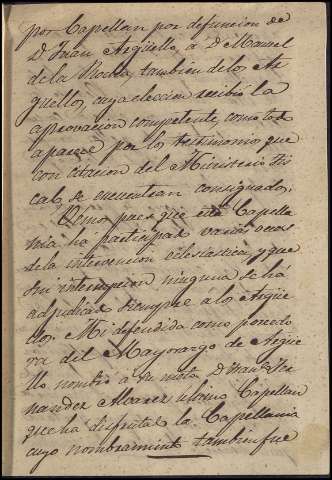 por Capellan por defuncion de
D. Juan Argüello, à D. Manuel
de la Rocha tambien delos Ar
guellos, cuya eleccion recibió la
aprovacion competente, como tod
aparece por los testimonios que
con citacion del Ministerio Fis
cal, se encuentran consignados.
Vemos pues que esta Capella
nia há participado varias veces
de la intervencion eclesiastica, y que
sin interrupcion ninguna se há
adjudicado siempre à los Argüe
llos. Mi defendida como poseedo
ra del Mayorazgo de Argüe
llo nombró a D. Fer
nandez Alvarez ultimo Capellan
que ha disfrutado la Capellania
cuyo nombramiento tambien fue